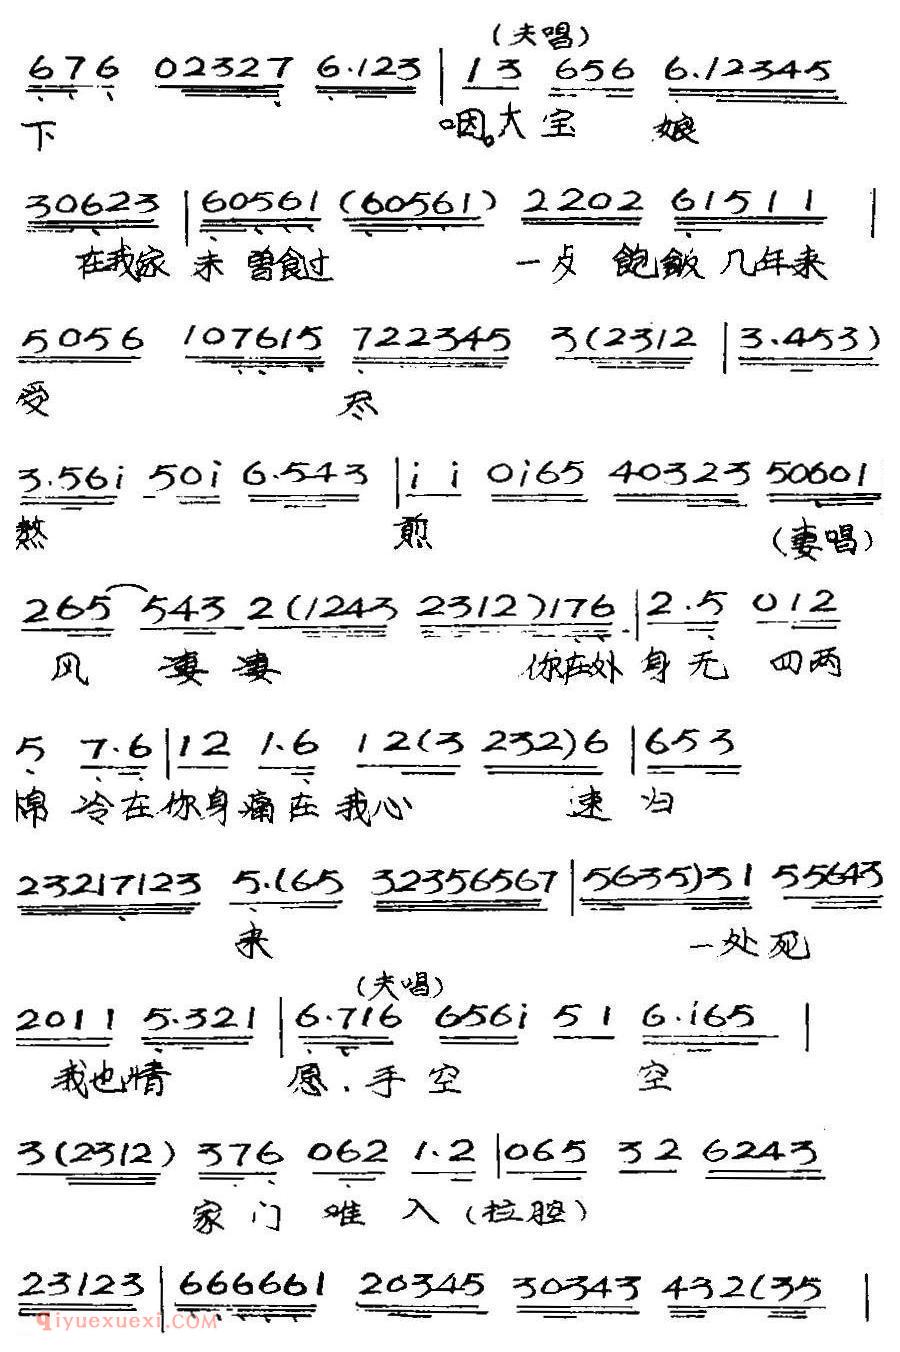 (夫唱)
676 02327 6.123 | 13 656 6.12345
下 咽。大宝 娘
30623 | 60561 (60561) 2202 61511 |
在我家 未 曾食过 一歺 飽飯 几年来
5056 107615 722345 3(2312 | 3.453)
受 尽
3.56i 50i 6.543 | i i 0i65 40323 50601
熬 煎 (妻唱)
265 543 2(1243 2312)176 | 2.5 012
风 凄凄 你在外 身无 四两
5 7.6 | 12 1.6 12(3 232)6 | 653
棉 冷在你身痛在我心 速归
23217123 5.(65 32356567 | 5635)31 55643
来 一处死
(夫唱)
2011 5.321 | 6.716 656i 51 6.i65 |
我也情 愿.手空 空
3(2312) 376 062 1.2 | 065 32 6243
家门 难 入(拉腔)
23123 | 666661 20345 30343 432(35 |
qiyuexuexi.com